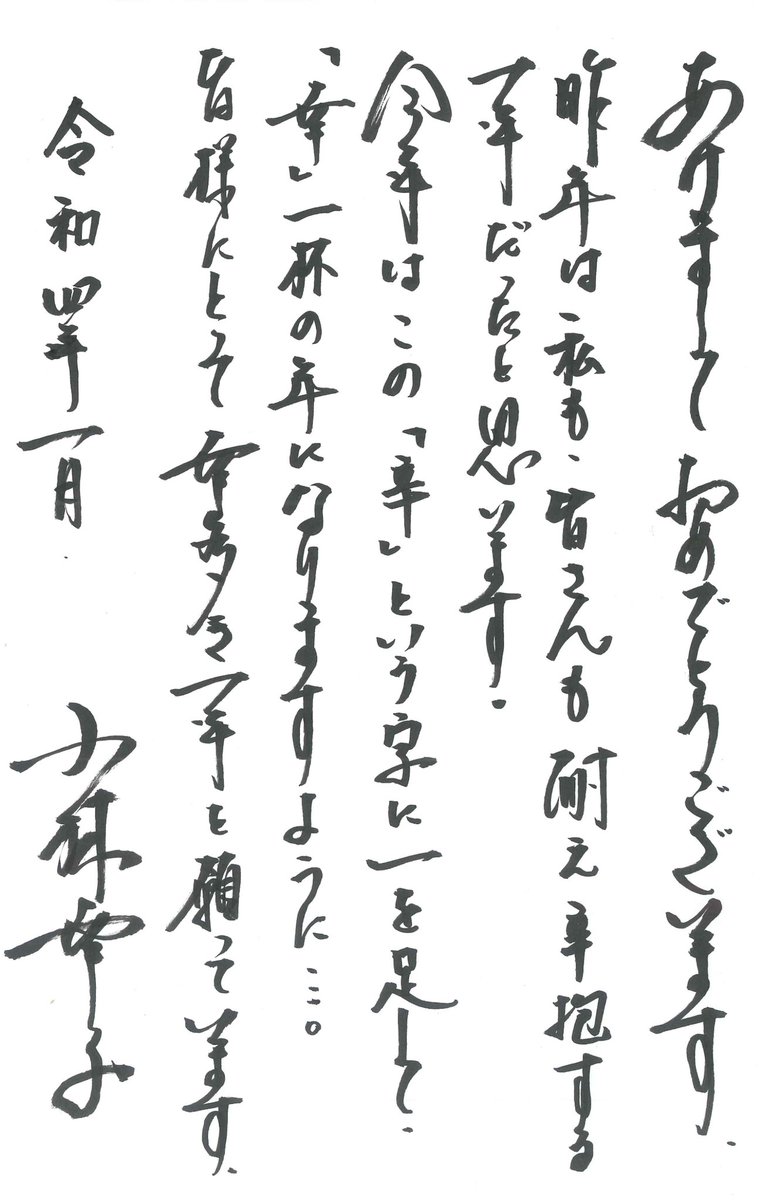 あけまして おめでとうございます.
昨年は、私も、皆さんも 耐え辛抱する
一年だったと思います.
今年はこの「辛」という字に一を足して、
「幸」一杯の年になりますように…。
皆様にとって 幸多き一年を願っています.
令和四年一月.
小林幸子